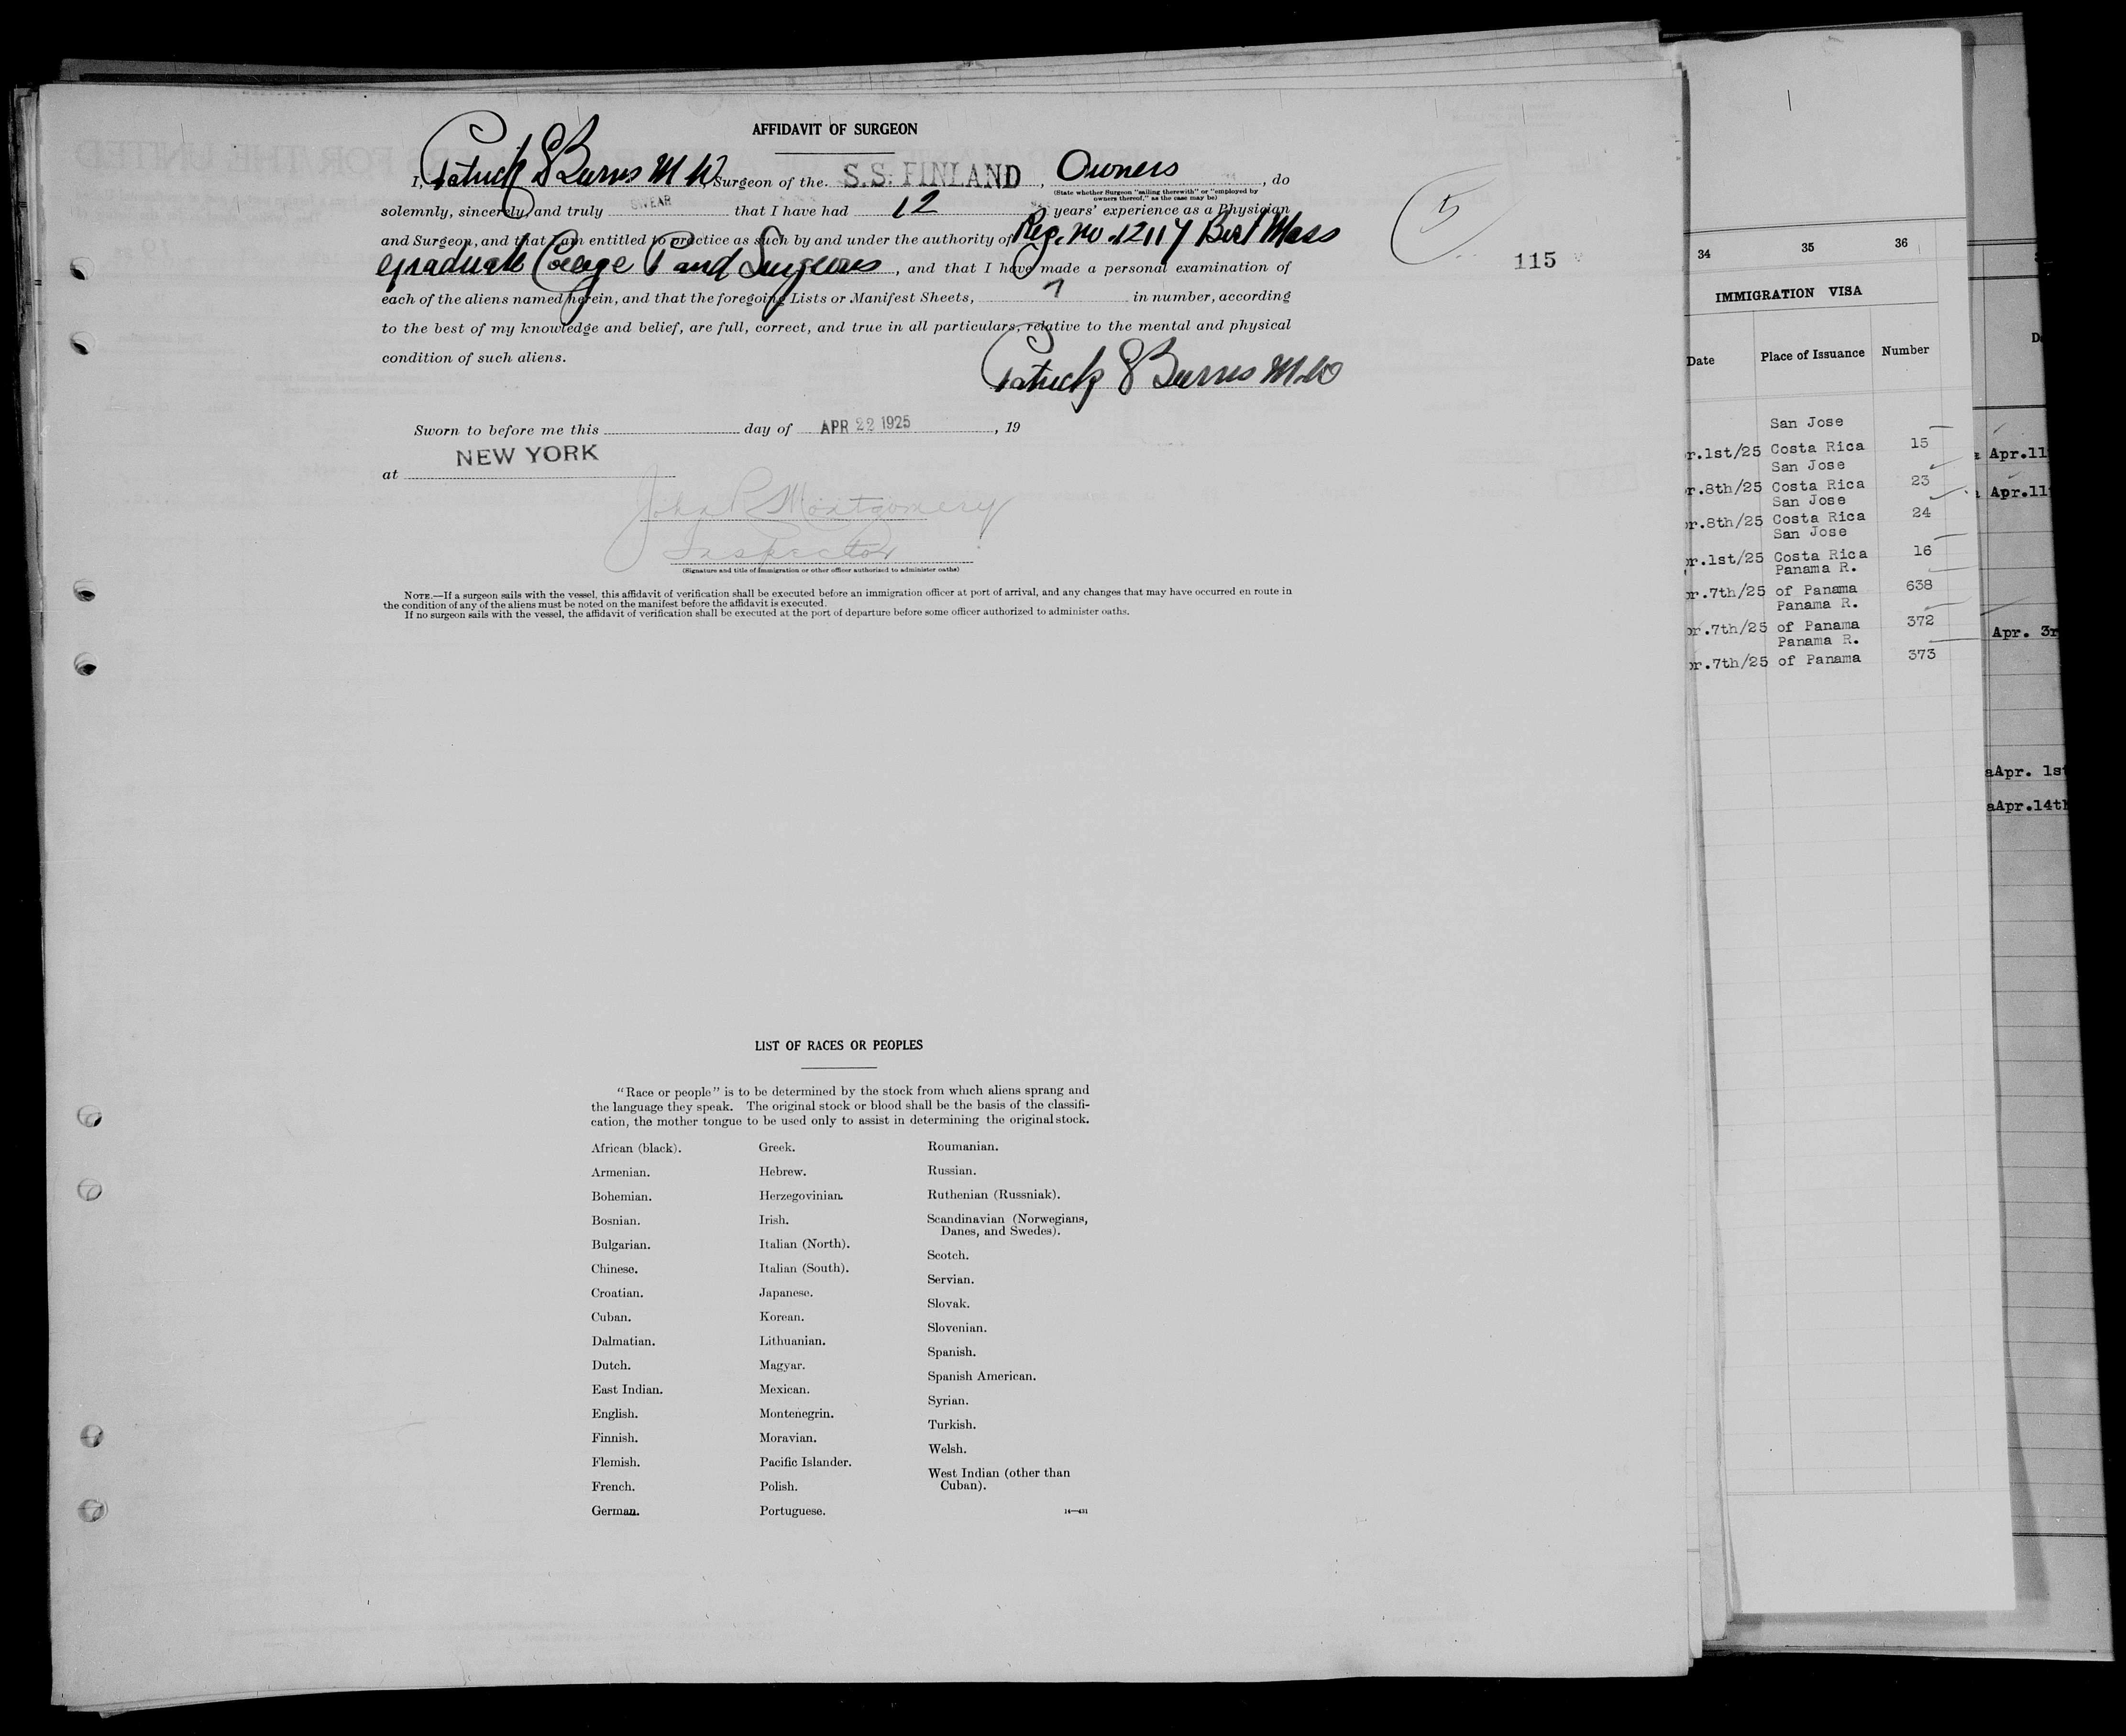 AFFIDAVIT OF SURGEON
I, Patrick S Burns M D, Surgeon of the S.S. FINLAND, Owners, do
(State whether Surgeon "sailing therewith" or "employed by
owners thereof," as the case may be)
solemnly, sincerely, and truly SWEAR that I have had 12 years' experience as a Physician
and Surgeon, and that I am entitled to practice as such by and under the authority of Reg. no. 12117 Mass
graduate College P and Surgeons, and that I have made a personal examination of
each of the aliens named herein, and that the foregoing Lists or Manifest Sheets, 7 in number, according
to the best of my knowledge and belief, are full, correct, and true in all particulars, relative to the mental and physical
condition of such aliens.
Patrick S Burns M.D
Sworn to before me this day of APR 22 1925, 19
at NEW YORK
John R Montgomery
Inspector
(Signature and title of Immigration or other officer authorized to administer oaths)
NOTE.—If a surgeon sails with the vessel, this affidavit of verification shall be executed before an immigration officer at port of arrival, and any changes that may have occurred en route in
the condition of any of the aliens must be noted on the manifest before the affidavit is executed.
If no surgeon sails with the vessel, the affidavit of verification shall be executed at the port of departure before some officer authorized to administer oaths.
5
115
LIST OF RACES OR PEOPLES
"Race or people" is to be determined by the stock from which aliens sprang and
the language they speak. The original stock or blood shall be the basis of the classifi-
cation, the mother tongue to be used only to assist in determining the original stock.
African (black).
Armenian.
Bohemian.
Bosnian.
Bulgarian.
Chinese.
Croatian.
Cuban.
Dalmatian.
Dutch.
East Indian.
English.
Finnish.
Flemish.
French.
German.
Greek.
Hebrew.
Herzegovinian.
Irish.
Italian (North).
Italian (South).
Japanese.
Korean.
Lithuanian.
Magyar.
Mexican.
Montenegrin.
Moravian.
Pacific Islander.
Polish.
Portuguese.
Roumanian.
Russian.
Ruthenian (Russniak).
Scandinavian (Norwegians,
Danes, and Swedes).
Scotch.
Servian.
Slovak.
Slovenian.
Spanish.
Spanish American.
Syrian.
Turkish.
Welsh.
West Indian (other than
Cuban).
14—431
34 35 36
IMMIGRATION VISA
Date Place of Issuance Number
San Jose
r.1st/25 Costa Rica 15
San Jose
r.8th/25 Costa Rica 23
San Jose
or.8th/25 Costa Rica 24
San Jose
or.1st/25 Costa Rica 16
Panama R.
or.7th/25 of Panama 638
Panama R.
or.7th/25 of Panama 372
Panama R.
or.7th/25 of Panama 373
Apr.11
Apr.11
Apr. 3r
aApr. 1st
aApr.14th